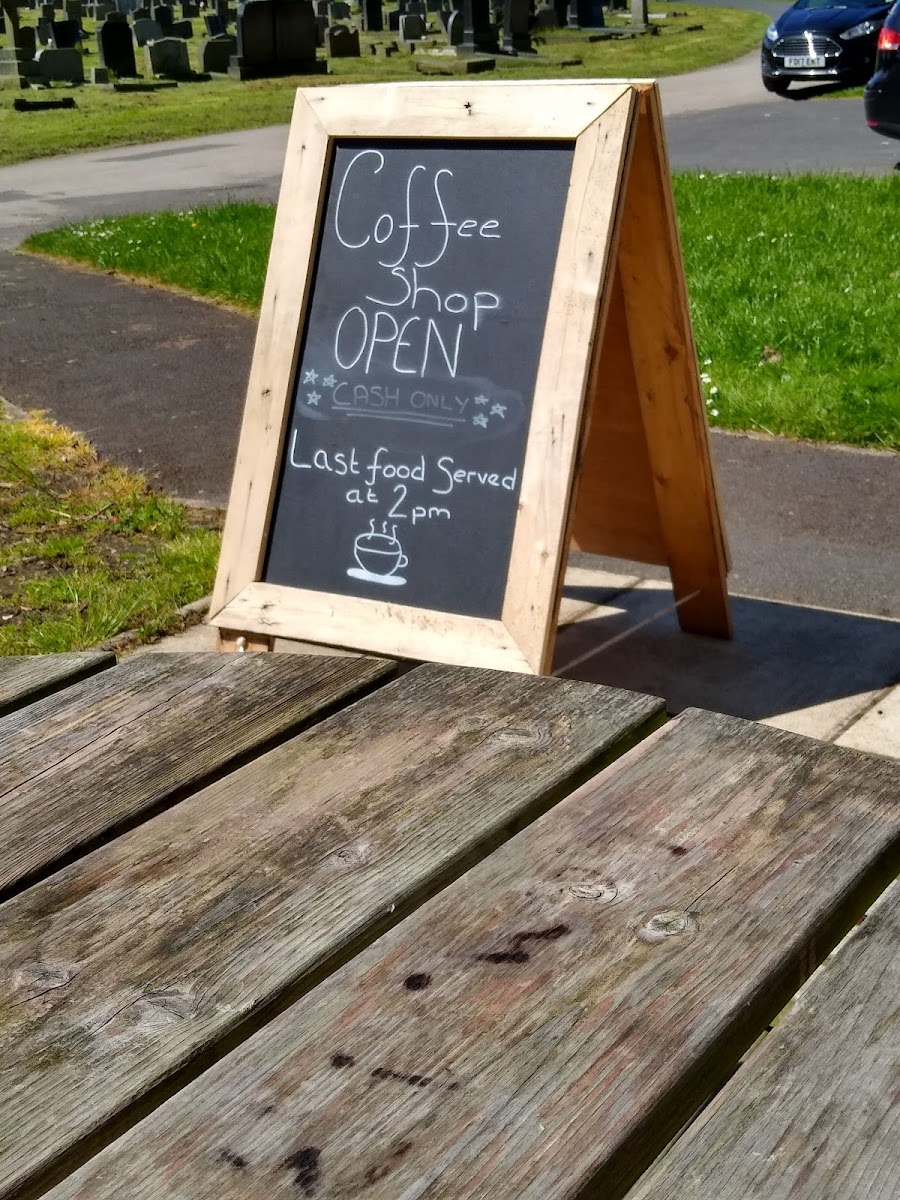 Coffee
Shop
OPEN
CASH ONLY
Last food Served
at 2pm